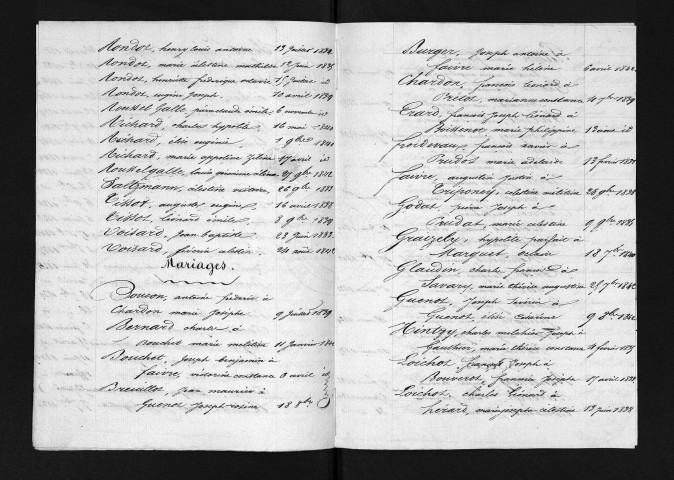 Mondot, henry louis antoine 13 Juillet 1832
Mondot, marie célestine mathilde 12 Juin 1835
Mondot, henriette fréderique octavie id
Mondot, eugène Joseph 10 avril 1839
Roussel Galle, pierre claude émile 6 novembre id
Richard, charles hypolite 16 mai 1840
Richard, élie eugénie 1 9bre 1841
Richard, marie appoline Zélina 17 avril id
Rousselgalle, louis 1842
Saltzmann, célestine victoire 26 9bre 1832
Tissot, auguste eugène 16 avril 1838
Tissot, léonard émile 8 9bre 1839
Voisard, Jean baptiste 23 Juin 1833
Voisard, célestin 24 août 1842
Mariages.
Boucon, antoine fréderic à
Chardon marie Josephe 9 Juillet 1839
Bernard charles à
Bouchet marie mélitine 11 Janvier 1842
Bouchot, Joseph benjamin à
faivre, victorine constance 6 avril id
Breuillot, Jean maurice à
Guenot Joseph-rosine 18 8bre
Burger, Joseph antoine à
faivre marie helene 6 avril 1842
Chardon, francois léonard à
marianne constance 1839
Erard, francois Joseph léonard à
Boissenot marie philippine 13 id
francois xavier à
Prudot marie adelaide 13 février
faivre, augustin justin à
Triponey, célestine mélitine 26 9bre 1838
Godat, pierre Joseph à
Prudat, marie célestine 9 9bre
Graizely, hypolite parfait à
Marguet, octavie 18 7bre 1840
Glaudin, charles francois à
Savary, marie thérèse augustine 25 7bre 1842
Guenot, Joseph Séverin à
Guenot élise Catherine 9 8bre 1842
Hintzy, charles melchior Joseph à
Gauthier, marie thérèse constance 4 février 1835
Loichot, françois Joseph à
Bouverot, francoise Josephe 17 avril 1838
Loichot, charles léonard à
herard, marie josephe célestine 13 Juin 1838